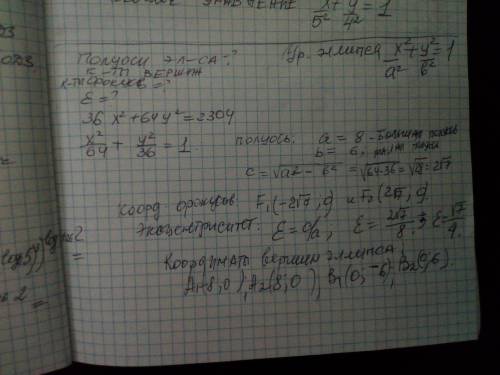 x²/5² + y²/4² = 1
Полуоси эл-са-?
Ур. эллипса x²/a² + y²/b² = 1
к-ты вершин
к-ты фокусов = ?
ε = ?
36x² + 64y² = 2304
x²/64 + y²/36 = 1.
полуось: a = 8 - большая полуось
b = 6, малая полуось
c = √a² - b² = √64-36 = √28 = 2√7
Коорд фокусов: F₁(-2√7; 0) и F₂(2√7; 0)
Эксцентриситет: ε = c/a; ε = 2√7/8; ε = √7/4.
Координаты вершин эллипса
A₁(-8; 0), A₂(8; 0), B₁(0; -6), B₂(0; 6).